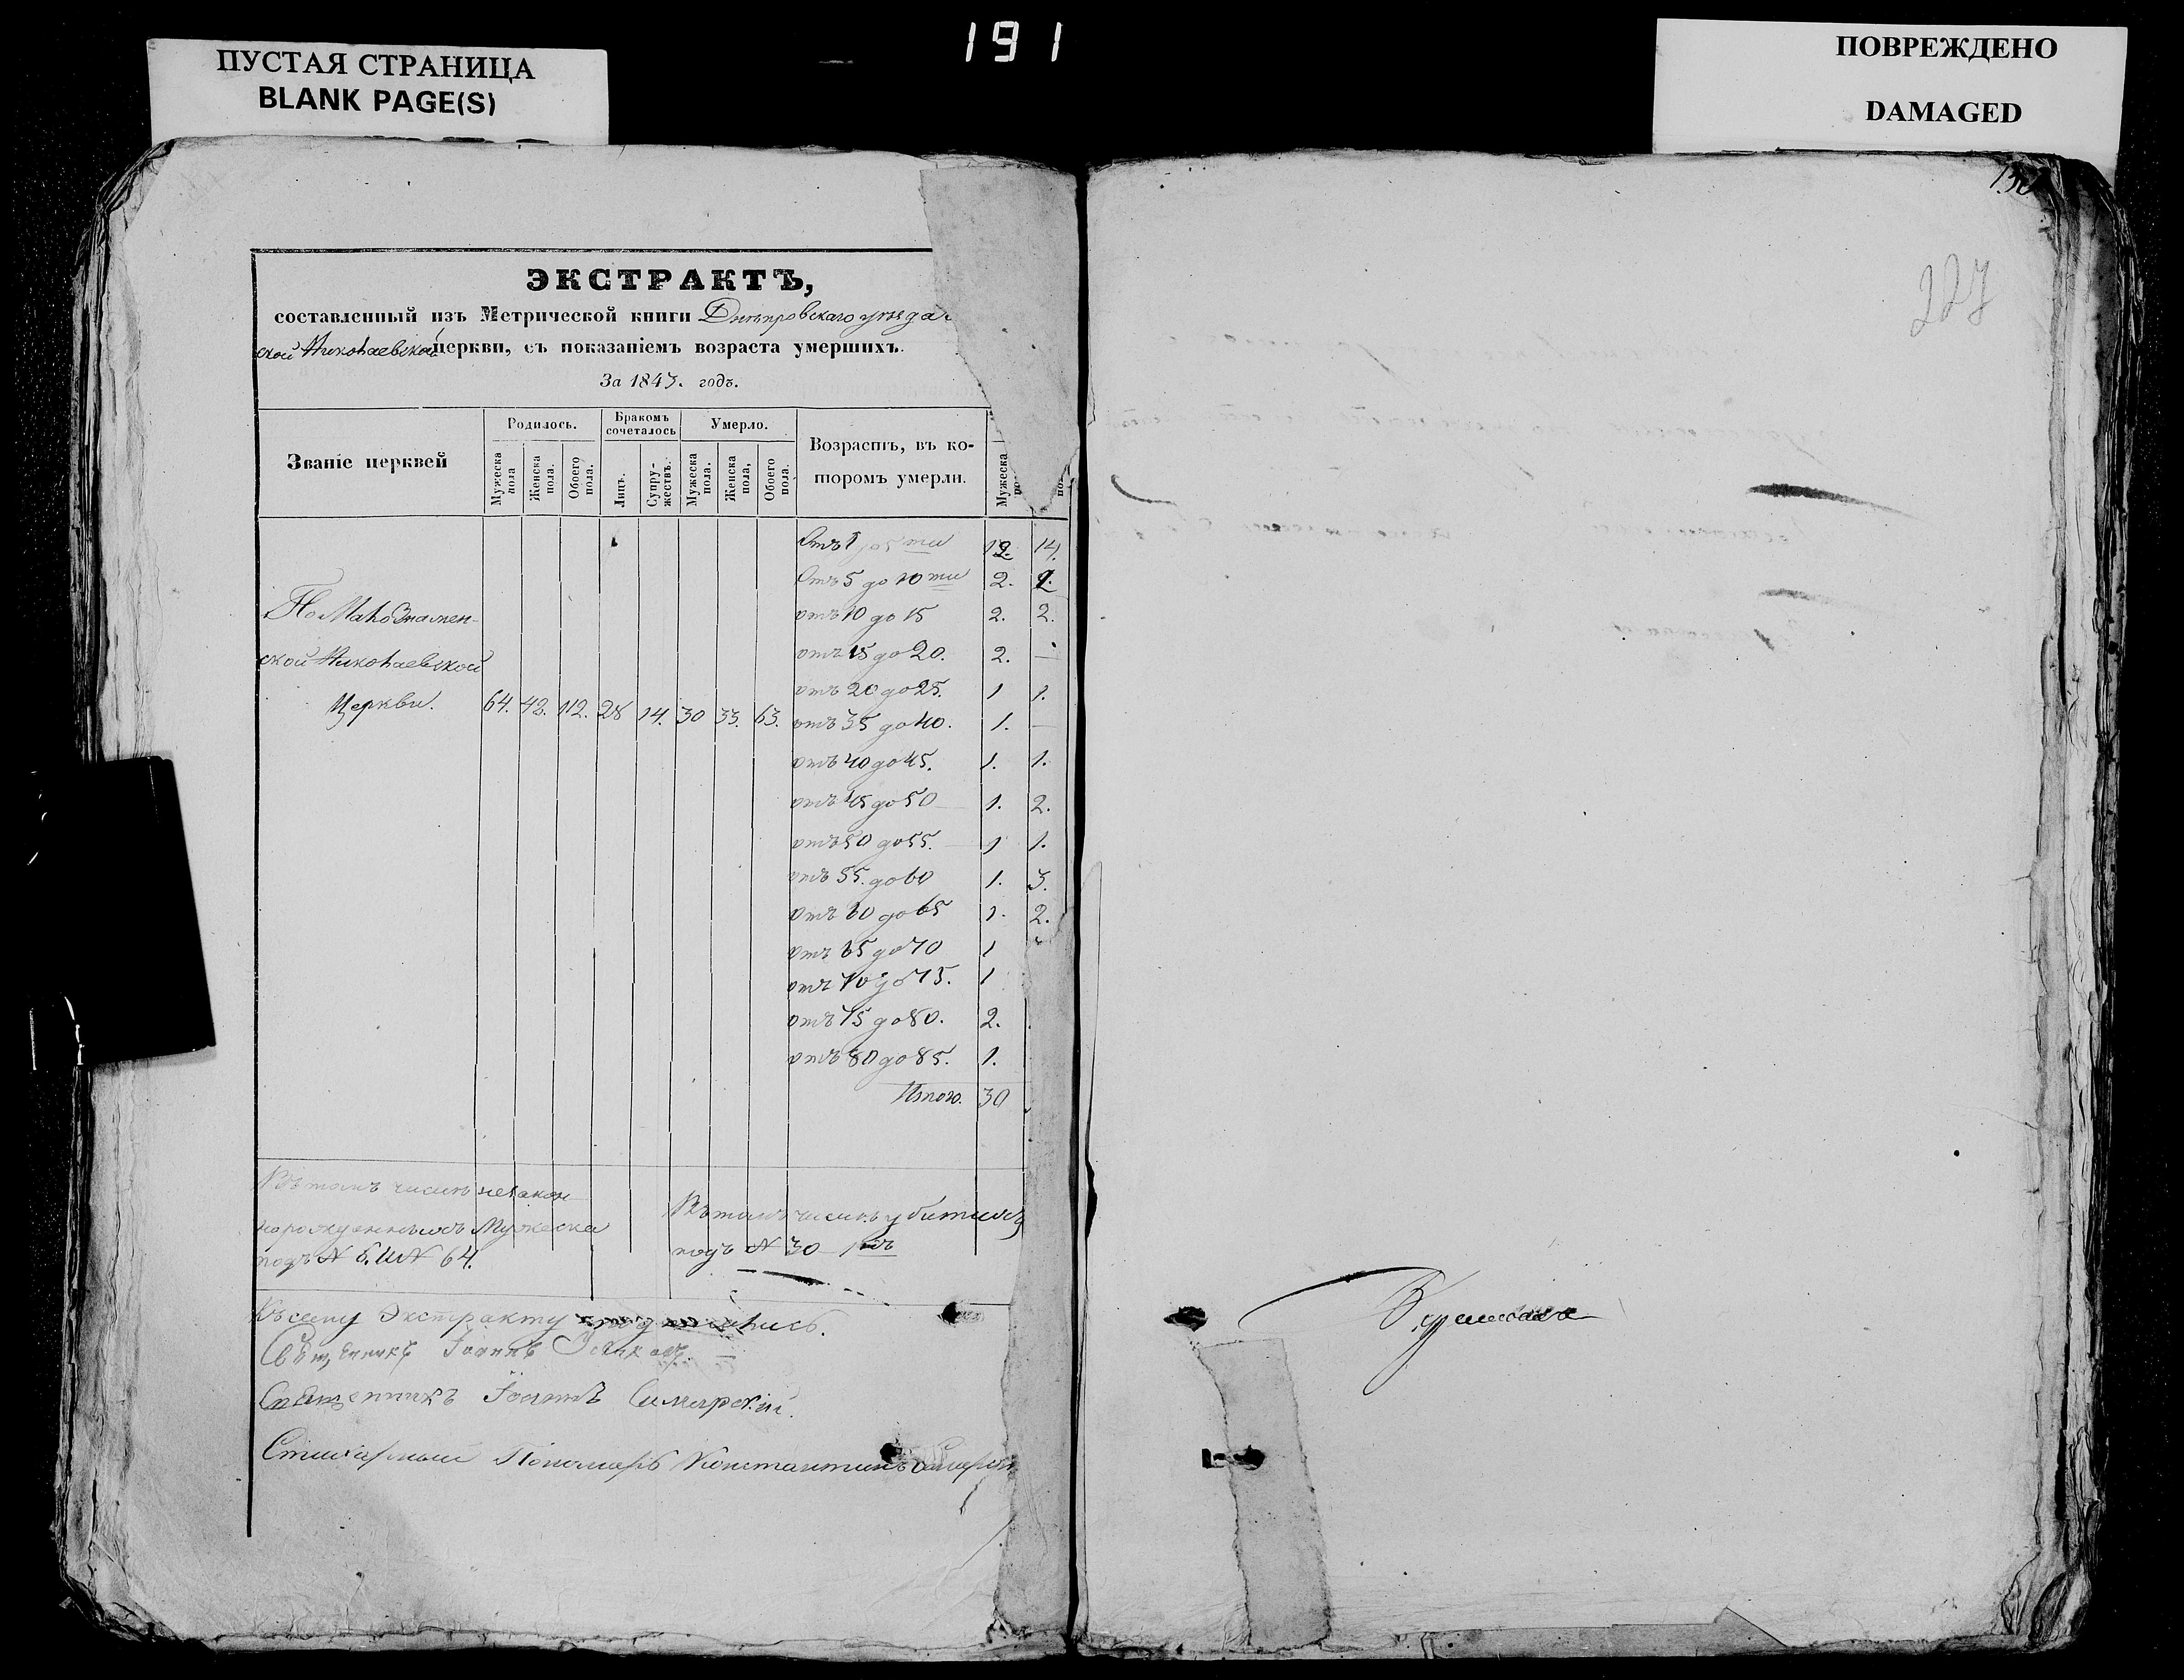 191
ПУСТАЯ СТРАНИЦА
BLANK PAGE(S)
ПОВРЕЖДЕНО
DAMAGED
227
ЭКСТРАКТЪ,
составленный изъ Метрической книги Днѣпровскаго уѣзда
ской Николаевской церкви, съ показаніемъ возраста умершихъ.
За 1843. годъ.
Званіе церквей
Родилось.
Мужеска пола
Женска пола.
Обоего пола.
Бракомъ сочеталось
Лицъ.
Супружествъ.
Умерло.
Мужеска пола.
Женска пола,
Обоего пола.
Возрастъ, въ ко-
торомъ умерли.
Мужеска
По Мало Знамен-
ской Николаевской
Церкви. 64. 48. 112. 28 14. 30 33. 63.
Отъ 1 до 5 ти 12. 14.
Отъ 5 до 10 ти 2. 2.
отъ 10 до 15 2. 2.
отъ 15 до 20. 2. —
отъ 20 до 25. 1 1.
отъ 35 до 40. 1. —
отъ 40 до 45. 1. 1.
отъ 45 до 50 1. 2.
отъ 50 до 55. 1 1.
отъ 55. до 60 1. 3.
отъ 60 до 65 1. 2.
отъ 65 до 70 1
отъ 70 до 75. 1
отъ 75 до 80. 2.
отъ 80 до 85. 1.
Итого. 30
Въ томъ числѣ незакон
норожденныхъ Мужеска
подъ № 6. и № 64.
Въ томъ числѣ убитыхъ
подъ № 30 1
Къ сему Экстракту
Священникъ Іоаннъ
Священникъ Іоаннъ Симарскій.
Стихарный Пономарь Константинъ